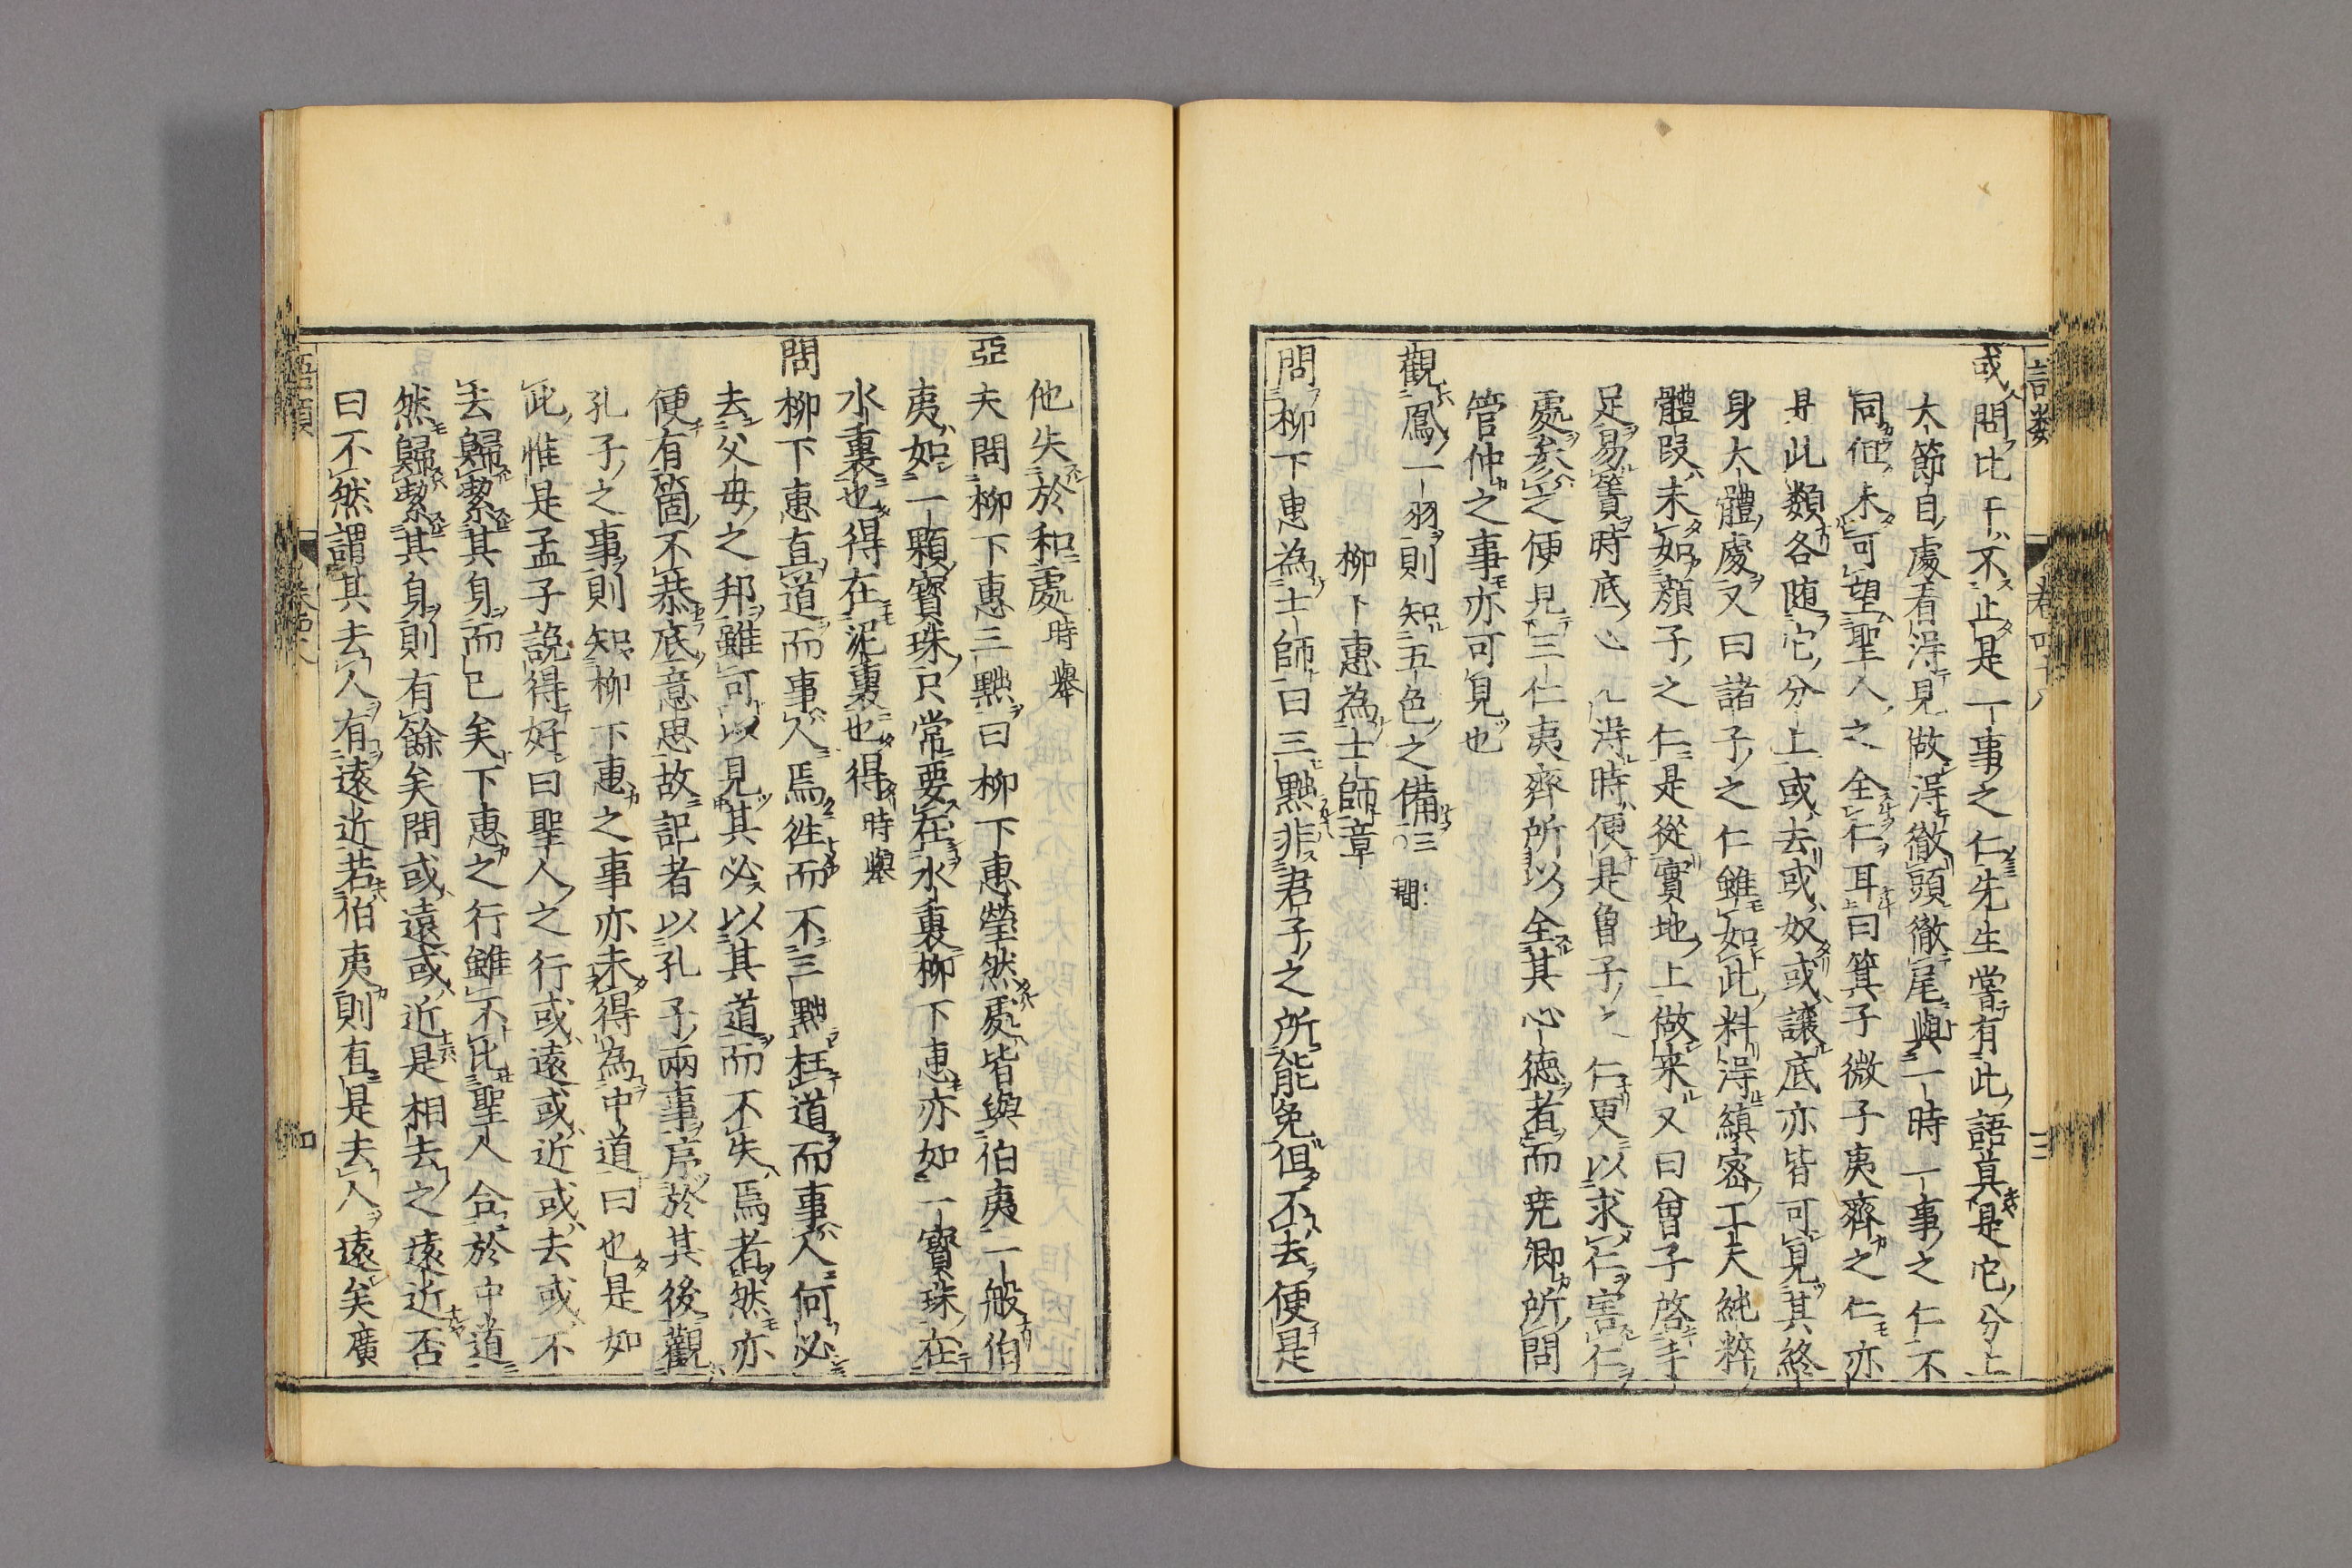 語類 卷四十八 三
或問比干不止是一事之仁先生嘗有此語真是它分上
大節目處看得見做得徹頭徹尾與一時一事之仁不
同但未可望聖人之全仁耳曰箕子微子夷齊之仁亦
是此類各随它分上或去或奴或讓底亦皆可見其終
身大體處又曰諸子之仁雖如此料得縝密工夫純粹
體段未如顏子之仁是從實地上做来又曰曾子啓手
足易簀時底心 得時便是曾子之仁更以求仁害仁
處參之便見三仁夷齊所以全其心德者而尭卿所問
管仲之事亦可見也
觀鳳一羽則知五色之備三仁
柳下惠為士師章
問柳下惠為士師曰三黜非君子之所能免但不去便是
他失於和處時舉
亞夫問柳下惠三黜曰柳下惠瑩然處皆與伯夷一般伯
夷如一顆寶珠只常要在水裏柳下惠亦如一寶珠在
水裏也得在泥裏也得時舉
問柳下惠直道而事人焉徃而不三黜枉道而事人何必
去父母之邦雖可以見其必以其道而不失焉者然亦
便有箇不恭底意思故記者以孔子兩事序於其後觀
孔子之事則知柳下惠之事亦未得為中道曰也是如
此惟是孟子說得好曰聖人之行或遠或近或去或不
去歸潔其身而已矣下惠之行雖不比聖人合於中道
然歸潔其身則有餘矣問或遠或近是相去之遠近否
曰不然謂其去人有遠近若伯夷則直是去人遠矣廣
語類 卷四十八 四